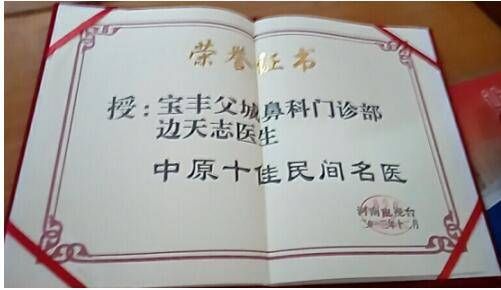 荣誉证书
授：宝丰父城鼻科门诊部
边天志医生
中原十佳民间名医
河南电视台
年十二月